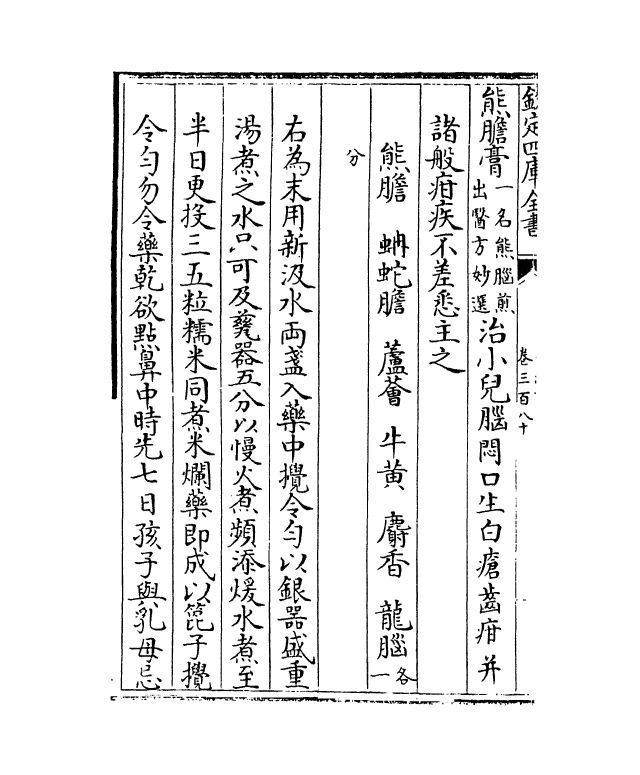 欽定四庫全書
卷三百八十
熊膽膏一名熊腦煎出醫方妙選治小兒腦悶口生白瘡齒疳并
諸般疳疾不差悉主之
熊膽 蚺蛇膽 蘆薈 牛黄 麝香 龍腦各一
分
右為末用新汲水两盞入藥中攪令匀以銀器盛重
湯煮之水只可及甆器五分以慢火煮頻添煖水煮至
半日更投三五粒糯米同煮米爛藥即成以篦子攪
令匀勿令藥乾欲點鼻中時先七日孩子與乳母忌